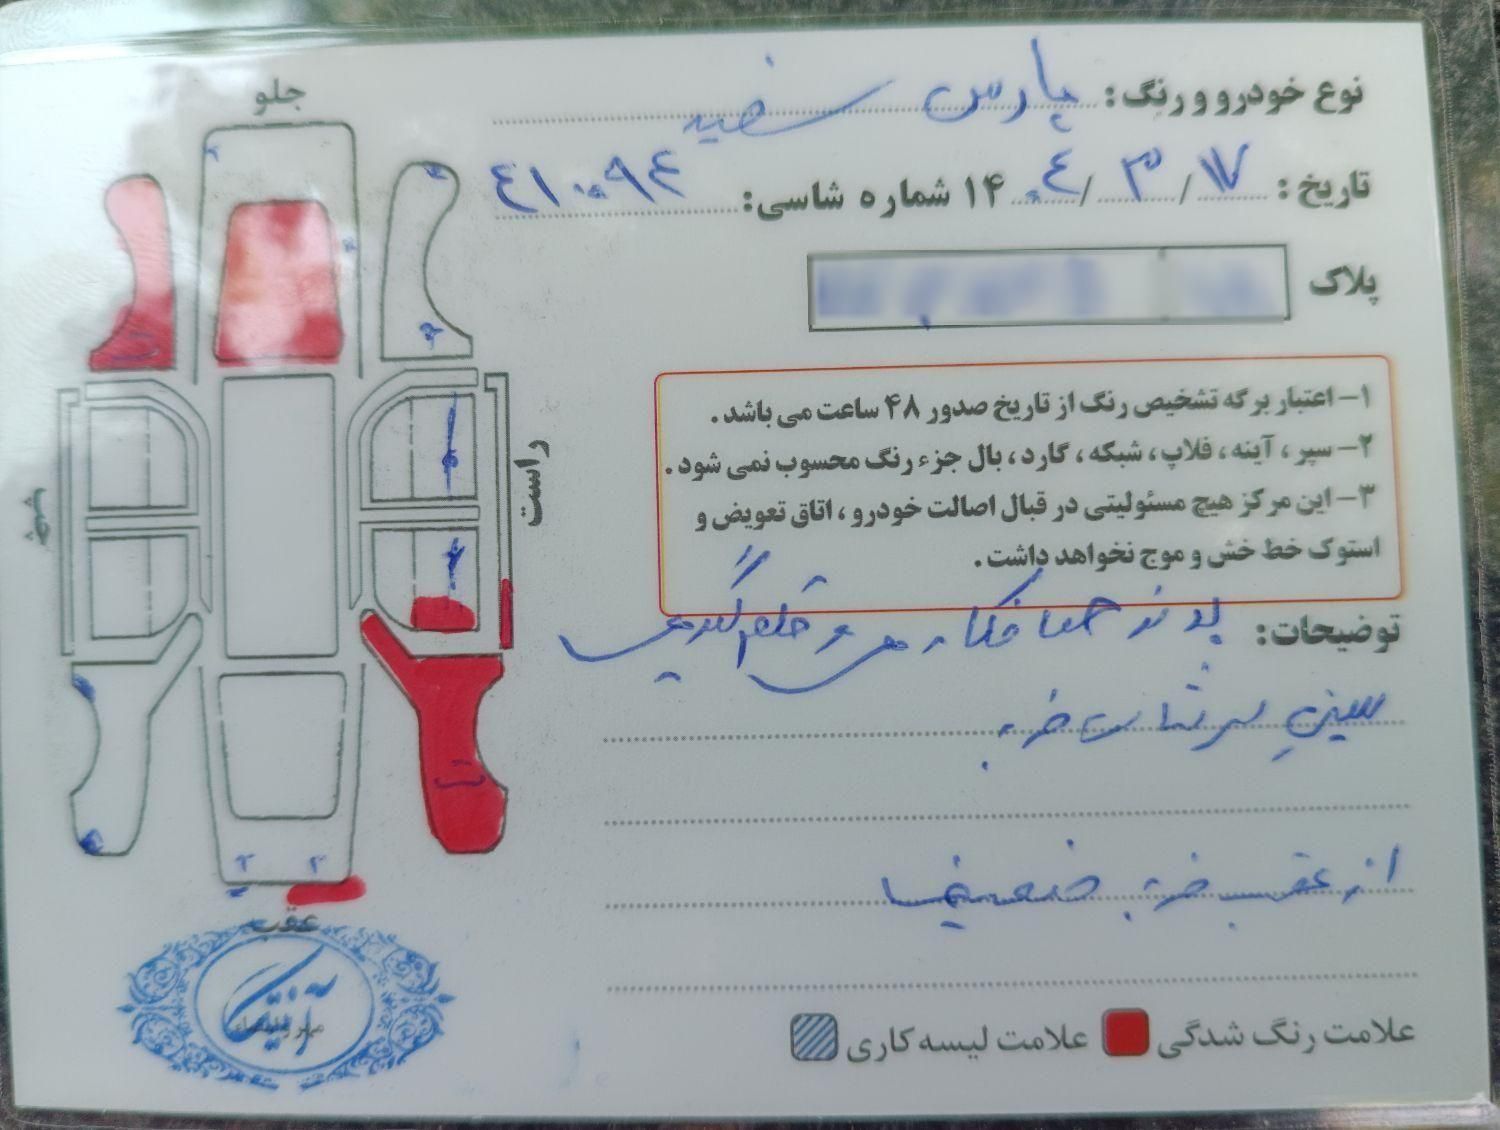 جلو
نوع خودرو و رنگ: پارس سفید
تاریخ: ۱۷ / ۳ / ۰۴ ۱۴ شماره شاسی: ۴۱۰۰۹۴
پلاک
۱- اعتبار برگه تشخیص رنگ از تاریخ صدور ۴۸ ساعت می باشد.
۲- سپر، آینه، فلاپ، شبکه، گارد، بال جزء رنگ محسوب نمی شود.
۳- این مرکز هیچ مسئولیتی در قبال اصالت خودرو، اتاق تعویض و
استوک خط خش و موج نخواهد داشت.
راست
چپ
توضیحات: بدنه صافکاری و قلم گیری
سینی سرشاسی ضربه
از عقب ضربه ضعیف
عقب
مهر و امضاء
علامت رنگ شدگی علامت لیسه کاری